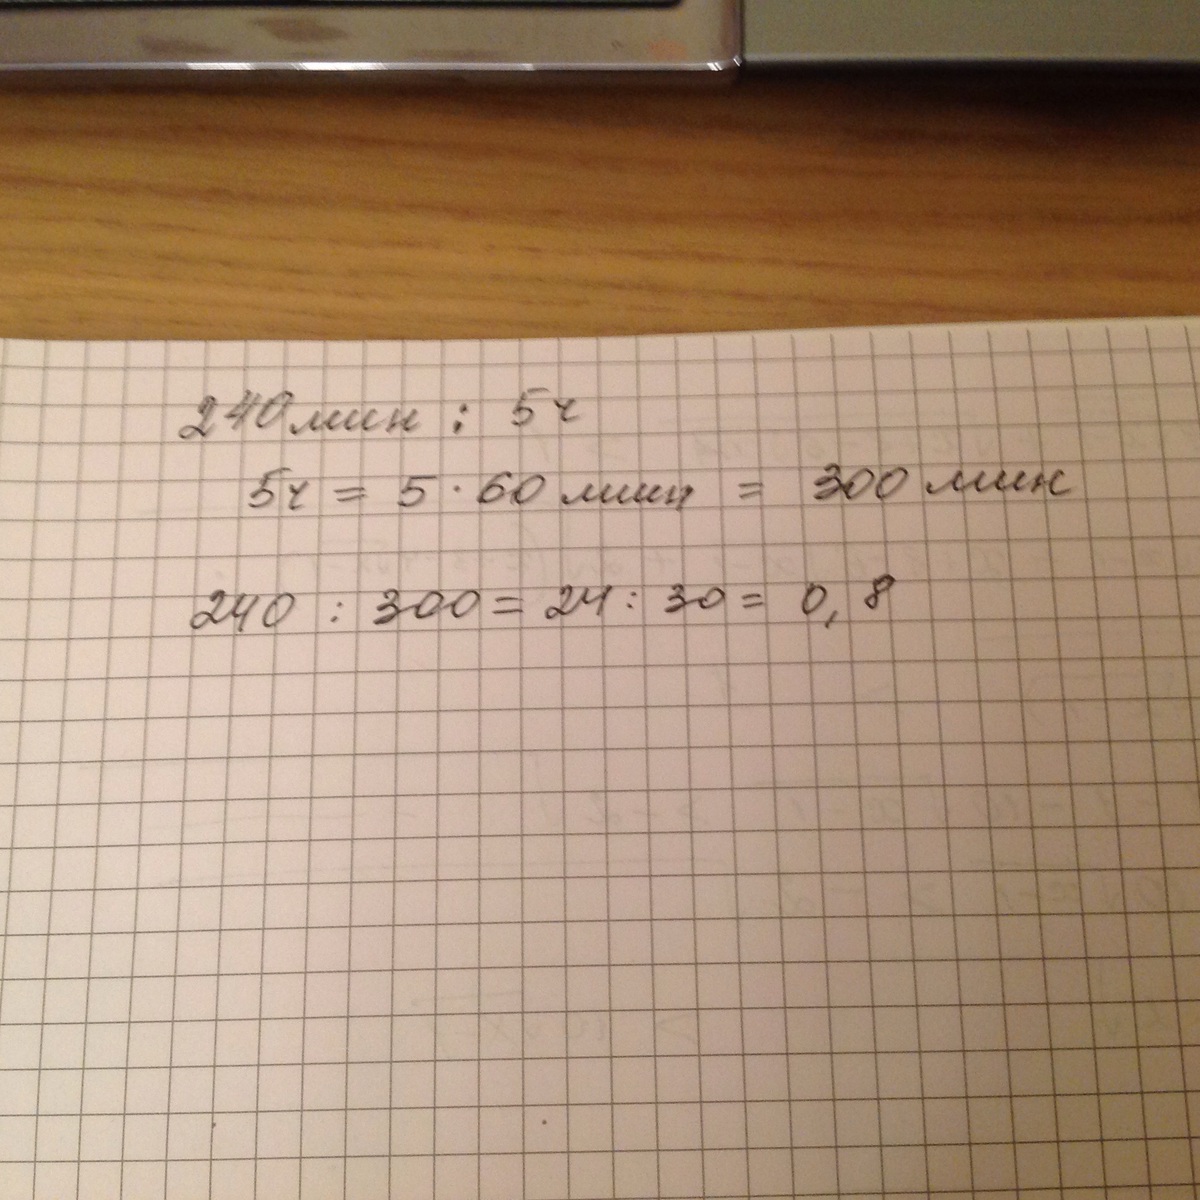 240мин : 5ч
5ч = 5 · 60 мин = 300 мин
240 : 300 = 24 : 30 = 0,8